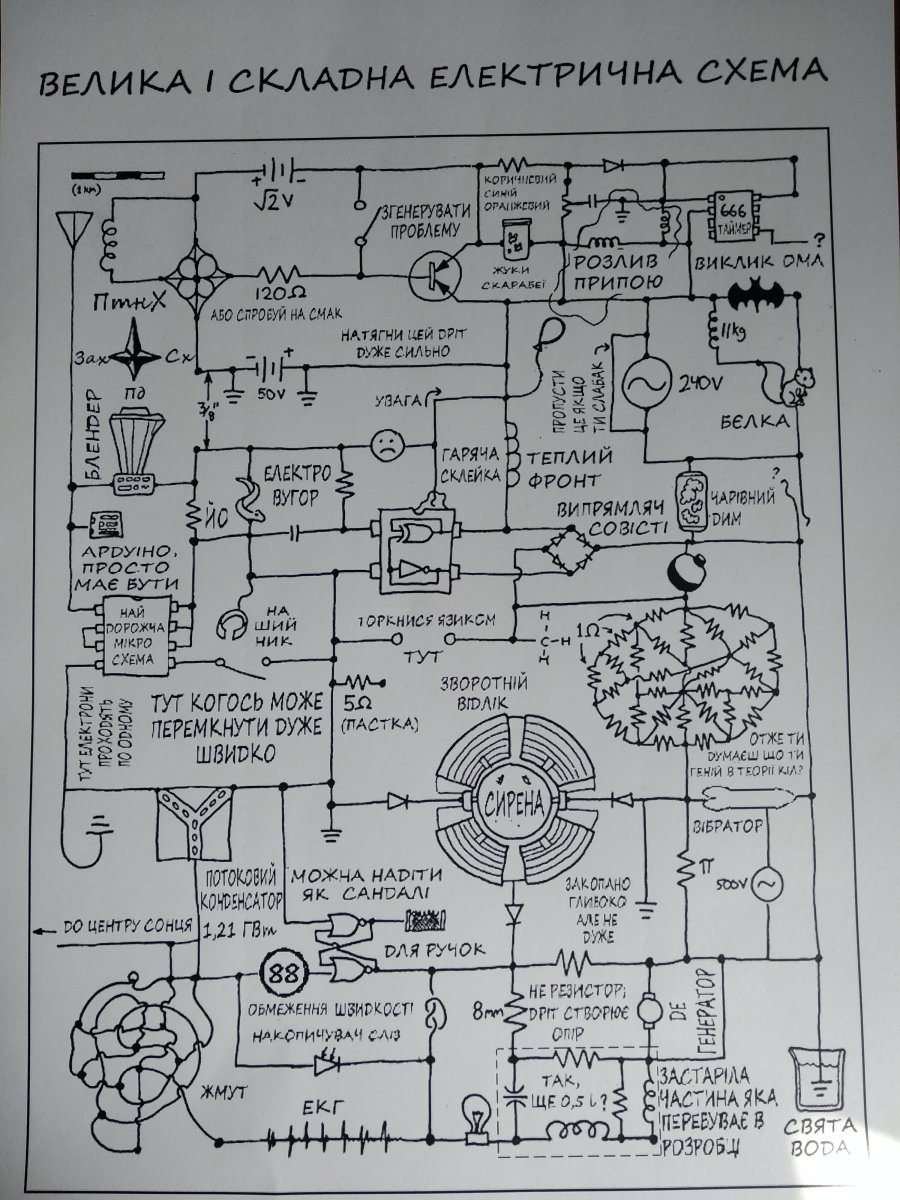 ВЕЛИКА І СКЛАДНА ЕЛЕКТРИЧНА СХЕМА
(1км)
√2V
+
−
ЗГЕНЕРУВАТИ
ПРОБЛЕМУ
КОРИЧНЕВИЙ
СИНІЙ
ОРАНЖЕВИЙ
ЖУКИ
СКАРАБЕЇ
РОЗЛИВ
ПРИПОЮ
666
ТАЙМЕР
?
ВИКЛИК ОМА
120Ω
АБО СПРОБУЙ НА СМАК
ПтнХ
Зах
Сх
Пд
НАТЯГНИ ЦЕЙ ДРІТ
ДУЖЕ СИЛЬНО
−
+
50V
3/8"
УВАГА
ПРОПУСТИ
ЦЕ ЯКЩО
ТИ СЛАБАК
240V
11kg
БЄЛКА
БЛЕНДЕР
ЕЛЕКТРО
ВУГОР
ЙО
ГАРЯЧА
СКЛЕЙКА
ТЕПЛИЙ
ФРОНТ
ВИПРЯМЛЯЧ
СОВІСТІ
ЧАРІВНИЙ
ДИМ
?
АРДУІНО,
ПРОСТО
МАЄ БУТИ
НАЙ
ДОРОЖЧА
МІКРО
СХЕМА
НА
ШИЙ
НИК
ТОРКНИСЯ ЯЗИКОМ
ТУТ
H
H-C-H
H
1Ω
ТУТ ЕЛЕКТРОНИ
ПРОХОДЯТЬ
ПО ОДНОМУ
ТУТ КОГОСЬ МОЖЕ
ПЕРЕМКНУТИ ДУЖЕ
ШВИДКО
5Ω
(ПАСТКА)
ЗВОРОТНІЙ
ВІДЛІК
СИРЕНА
ОТЖЕ ТИ
ДУМАЄШ ЩО ТИ
ГЕНІЙ В ТЕОРІЇ КІЛ?
ВІБРАТОР
π
500V
ПОТОКОВИЙ
КОНДЕНСАТОР
1,21 ГВт
МОЖНА НАДІТИ
ЯК САНДАЛІ
ЗАКОПАНО
ГЛИБОКО
АЛЕ НЕ
ДУЖЕ
ДО ЦЕНТРУ СОНЦЯ
ДЛЯ РУЧОК
88
ОБМЕЖЕННЯ ШВИДКОСТІ
НАКОПИЧУВАЧ СЛІЗ
8mm
НЕ РЕЗИСТОР;
ДРІТ СТВОРЮЄ
ОПІР
DE
ГЕНЕРАТОР
ЖМУТ
ЕКГ
ТАК,
ЩЕ 0,5 L?
ЗАСТАРІЛА
ЧАСТИНА ЯКА
ПЕРЕБУВАЄ В
РОЗРОБЦІ
СВЯТА
ВОДА